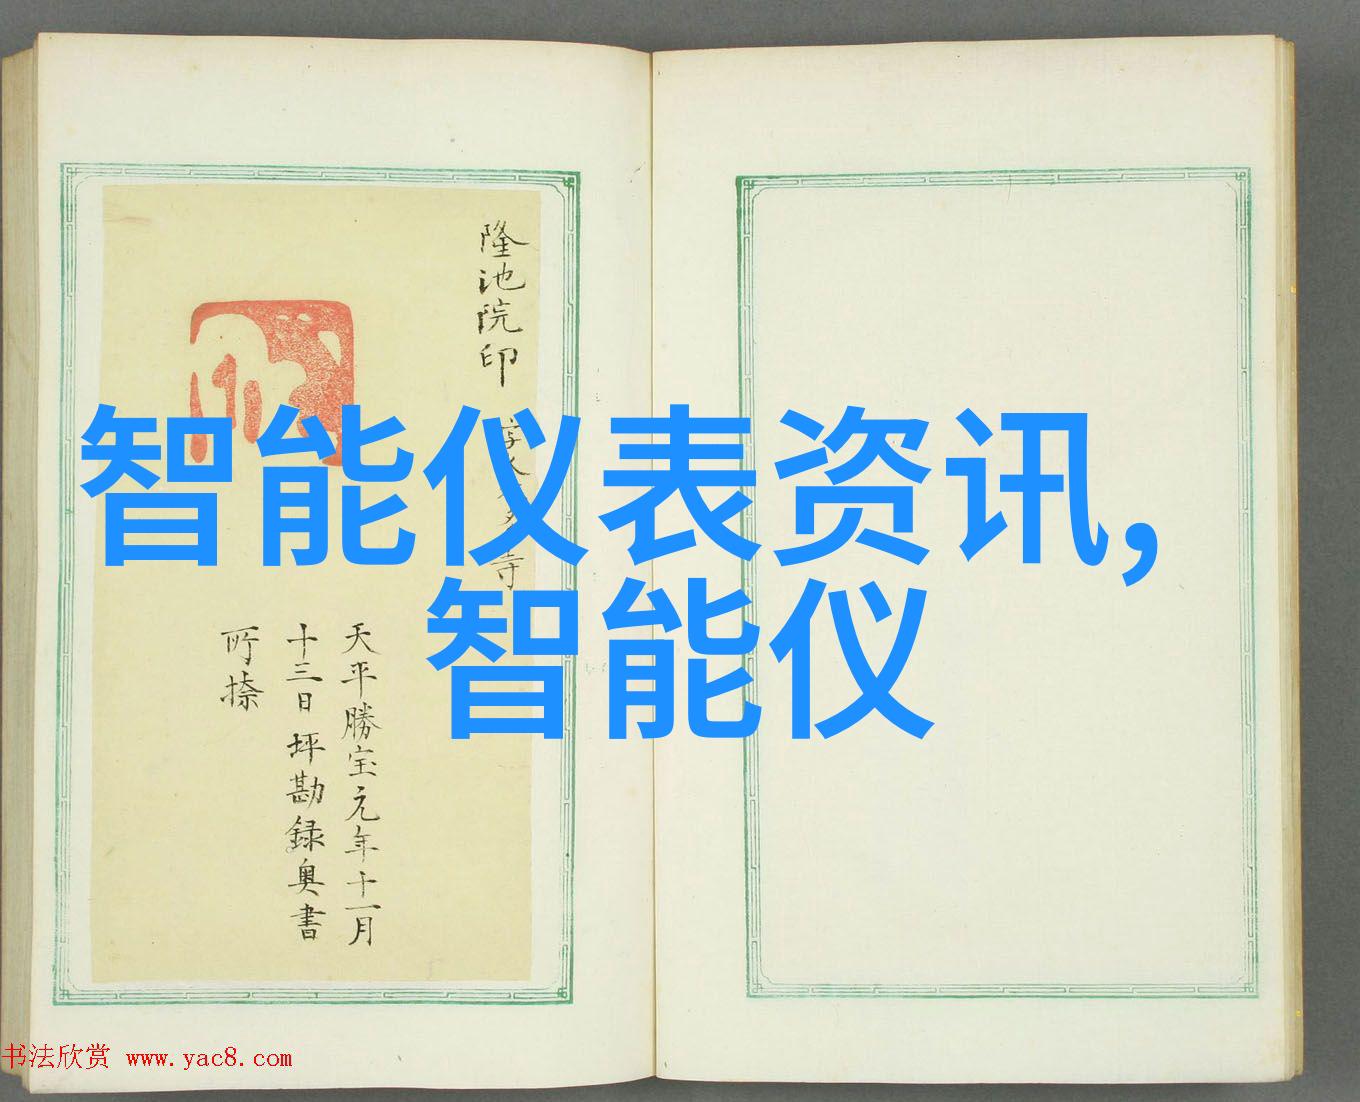 隆池院印
寺
天平勝宝元年十一月
十三日 坪勘録奥書
所捺
智能仪表资讯,
智能仪
书法欣赏 www.yac8.com